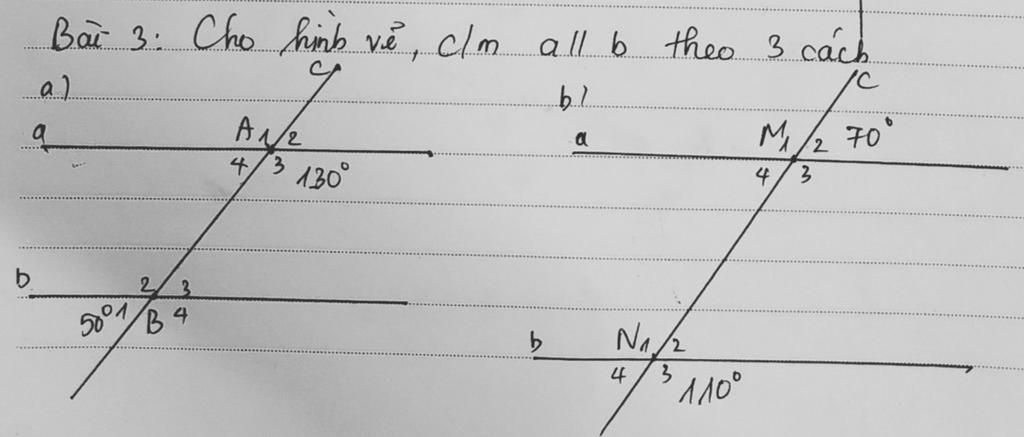 Bài 3: Cho hình vẽ, c/m a // b theo 3 cách
a) b)
c c
a A 1 2 a M 1 2 70°
4 3 130° 4 3
b 2 3 b N 1 2
50° 1 B 4 4 3 110°